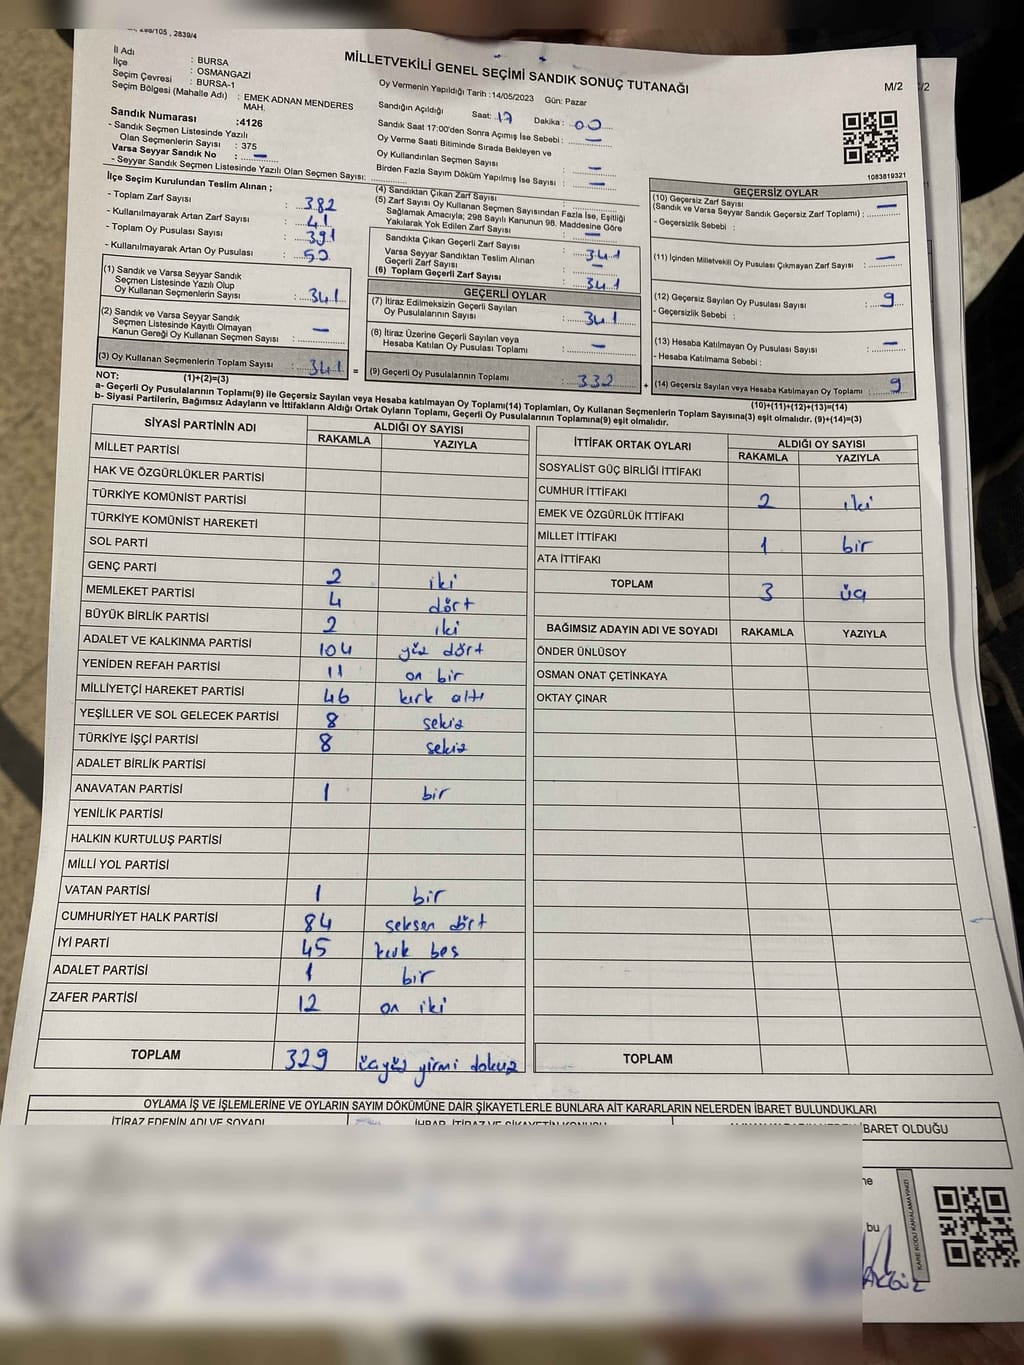 298/105 , 2839/4
MİLLETVEKİLİ GENEL SEÇİMİ SANDIK SONUÇ TUTANAĞI
M/2
/2
İl Adı : BURSA
İlçe : OSMANGAZİ
Seçim Çevresi : BURSA-1
Seçim Bölgesi (Mahalle Adı) : EMEK ADNAN MENDERES MAH.
Sandık Numarası :4126
- Sandık Seçmen Listesinde Yazılı
Olan Seçmenlerin Sayısı : 375
Varsa Seyyar Sandık No : —
- Seyyar Sandık Seçmen Listesinde Yazılı Olan Seçmen Sayısı:
Oy Vermenin Yapıldığı Tarih :14/05/2023 Gün: Pazar
Sandığın Açıldığı Saat: 17 Dakika : 00
Sandık Saat 17:00'den Sonra Açılmış İse Sebebi : —
Oy Verme Saati Bitiminde Sırada Bekleyen ve
Oy Kullandırılan Seçmen Sayısı : —
Birden Fazla Sayım Döküm Yapılmış İse Sayısı : —
1083819321
İlçe Seçim Kurulundan Teslim Alınan ;
- Toplam Zarf Sayısı : 382
- Kullanılmayarak Artan Zarf Sayısı : 41
- Toplam Oy Pusulası Sayısı : 391
- Kullanılmayarak Artan Oy Pusulası : 50
(1) Sandık ve Varsa Seyyar Sandık
Seçmen Listesinde Yazılı Olup
Oy Kullanan Seçmenlerin Sayısı : 341
(2) Sandık ve Varsa Seyyar Sandık
Seçmen Listesinde Kayıtlı Olmayan
Kanun Gereği Oy Kullanan Seçmen Sayısı : —
(3) Oy Kullanan Seçmenlerin Toplam Sayısı : 341 =
(4) Sandıktan Çıkan Zarf Sayısı :
(5) Zarf Sayısı Oy Kullanan Seçmen Sayısından Fazla İse, Eşitliği
Sağlamak Amacıyla; 298 Sayılı Kanunun 98. Maddesine Göre
Yakılarak Yok Edilen Zarf Sayısı : —
Sandıkta Çıkan Geçerli Zarf Sayısı : 341
Varsa Seyyar Sandıktan Teslim Alınan
Geçerli Zarf Sayısı : —
(6) Toplam Geçerli Zarf Sayısı : 341
GEÇERLİ OYLAR
(7) İtiraz Edilmeksizin Geçerli Sayılan
Oy Pusulalarının Sayısı : 341
(8) İtiraz Üzerine Geçerli Sayılan veya
Hesaba Katılan Oy Pusulası Toplamı : —
(9) Geçerli Oy Pusulalarının Toplamı : 332 +
GEÇERSİZ OYLAR
(10) Geçersiz Zarf Sayısı
(Sandık ve Varsa Seyyar Sandık Geçersiz Zarf Toplamı) : —
- Geçersizlik Sebebi :
(11) İçinden Milletvekili Oy Pusulası Çıkmayan Zarf Sayısı : —
(12) Geçersiz Sayılan Oy Pusulası Sayısı : 9
- Geçersizlik Sebebi :
(13) Hesaba Katılmayan Oy Pusulası Sayısı : —
- Hesaba Katılmama Sebebi :
(14) Geçersiz Sayılan veya Hesaba Katılmayan Oy Toplamı : 9
NOT: (1)+(2)=(3)
(10)+(11)+(12)+(13)=(14)
a- Geçerli Oy Pusulalarının Toplamı(9) ile Geçersiz Sayılan veya Hesaba katılmayan Oy Toplamı(14) Toplamları, Oy Kullanan Seçmenlerin Toplam Sayısına(3) eşit olmalıdır. (9)+(14)=(3)
b- Siyasi Partilerin, Bağımsız Adayların ve İttifakların Aldığı Ortak Oyların Toplamı, Geçerli Oy Pusulalarının Toplamına(9) eşit olmalıdır.
SİYASİ PARTİNİN ADI ALDIĞI OY SAYISI
RAKAMLA YAZIYLA
MİLLET PARTİSİ
HAK VE ÖZGÜRLÜKLER PARTİSİ
TÜRKİYE KOMÜNİST PARTİSİ
TÜRKİYE KOMÜNİST HAREKETİ
SOL PARTİ
GENÇ PARTİ 2 iki
MEMLEKET PARTİSİ 4 dört
BÜYÜK BİRLİK PARTİSİ 2 iki
ADALET VE KALKINMA PARTİSİ 104 yüz dört
YENİDEN REFAH PARTİSİ 11 on bir
MİLLİYETÇİ HAREKET PARTİSİ 46 kırk altı
YEŞİLLER VE SOL GELECEK PARTİSİ 8 sekiz
TÜRKİYE İŞÇİ PARTİSİ 8 sekiz
ADALET BİRLİK PARTİSİ
ANAVATAN PARTİSİ 1 bir
YENİLİK PARTİSİ
HALKIN KURTULUŞ PARTİSİ
MİLLİ YOL PARTİSİ
VATAN PARTİSİ 1 bir
CUMHURİYET HALK PARTİSİ 84 seksen dört
İYİ PARTİ 45 kırk beş
ADALET PARTİSİ 1 bir
ZAFER PARTİSİ 12 on iki
TOPLAM 329 üçyüz yirmi dokuz
İTTİFAK ORTAK OYLARI ALDIĞI OY SAYISI
RAKAMLA YAZIYLA
SOSYALİST GÜÇ BİRLİĞİ İTTİFAKI
CUMHUR İTTİFAKI 2 iki
EMEK VE ÖZGÜRLÜK İTTİFAKI
MİLLET İTTİFAKI 1 bir
ATA İTTİFAKI
TOPLAM 3 üç
BAĞIMSIZ ADAYIN ADI VE SOYADI RAKAMLA YAZIYLA
ÖNDER ÜNLÜSOY
OSMAN ONAT ÇETİNKAYA
OKTAY ÇINAR
TOPLAM
OYLAMA İŞ VE İŞLEMLERİNE VE OYLARIN SAYIM DÖKÜMÜNE DAİR ŞİKAYETLERLE BUNLARA AİT KARARLARIN NELERDEN İBARET BULUNDUKLARI
İTİRAZ EDENİN ADI VE SOYADI İHBAR, İTİRAZ VE ŞİKAYETİN KONUSU İBARET OLDUĞU
ne
bu
KARE KODU KARALAMAYINIZ!